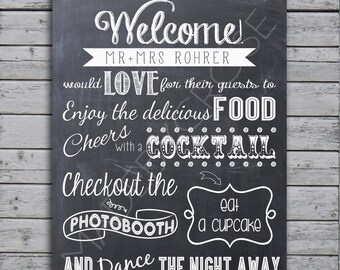 Welcome!
MR+MRS ROHRER
would LOVE for their guests to
Enjoy the delicious FOOD
Cheers with a COCKTAIL
Checkout the
PHOTOBOOTH
eat
a cupcake
AND Dance THE NIGHT AWAY